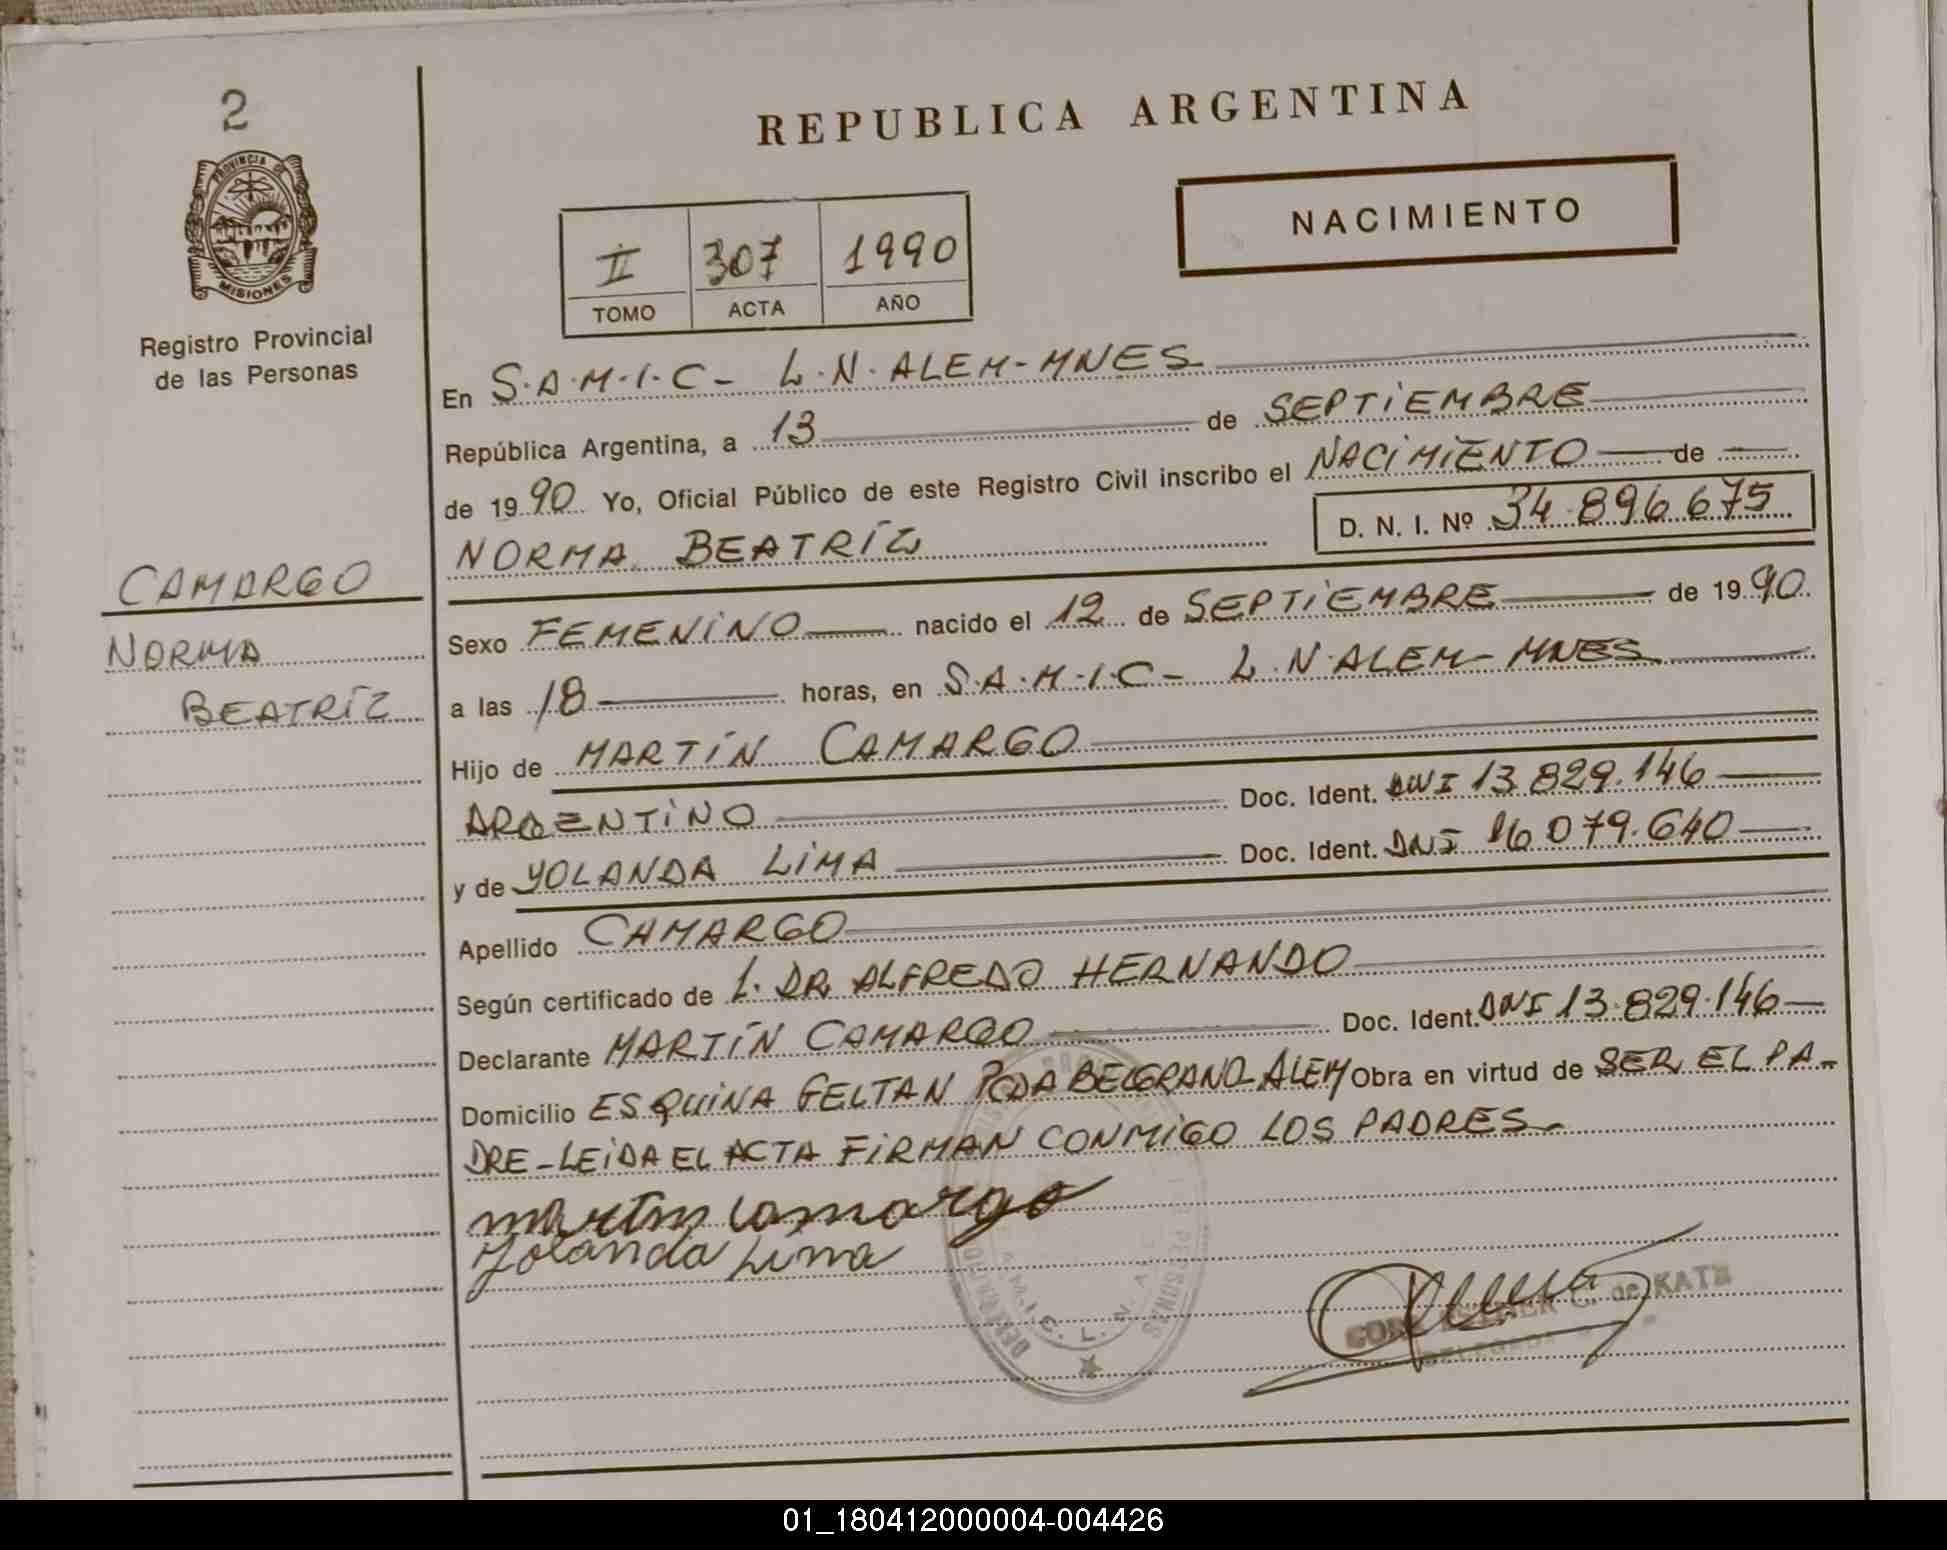 2
PROVINCIA DE
MISIONES
Registro Provincial
de las Personas
CAMARGO
NORMA
BEATRÍZ
REPUBLICA ARGENTINA
NACIMIENTO
II 307 1990
TOMO ACTA AÑO
En S.A.M.I.C- L.N.ALEM-MNES
República Argentina, a 13 de SEPTIEMBRE
de 1990 Yo, Oficial Público de este Registro Civil inscribo el NACIMIENTO de
NORMA BEATRÍZ D. N. I. Nº 34.896.675
Sexo FEMENINO nacido el 12 de SEPTIEMBRE de 1990.
a las 18 horas, en S.A.M.I.C- L.N.ALEM- MNES
Hijo de MARTÍN CAMARGO
ARGENTINO Doc. Ident. DNI 13.829.146
y de YOLANDA LIMA Doc. Ident. DNI 16.079.640
Apellido CAMARGO
Según certificado de L. DR. ALFREDO HERNANDO
Declarante MARTÍN CAMARGO Doc. Ident. DNI 13.829.146
Domicilio ESQUINA GELTAN PCDA BELGRANO-ALEM Obra en virtud de SER EL PA-
DRE-LEIDA EL ACTA FIRMAN CONMIGO LOS PADRES-
martin camargo
Yolanda Lima
C. de KATZ
01_180412000004-004426